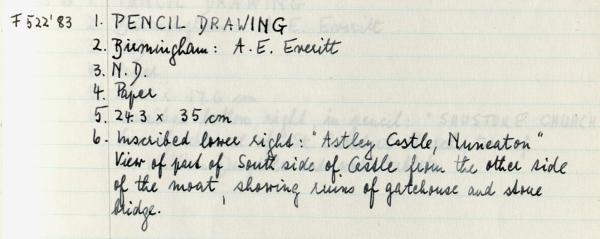 F522'83 1. PENCIL DRAWING
2. Birmingham: A. E. Everitt
3. N.D.
4. Paper
5. 24.3 x 35 cm
6. Inscribed lower right: "Astley Castle, Nuneaton"
View of part of South side of Castle from the other side
of the moat, showing ruins of gatehouse and stone
bridge.